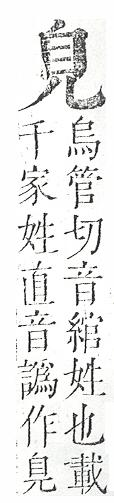 烏管切音綰姓也載
千家姓直音譌作